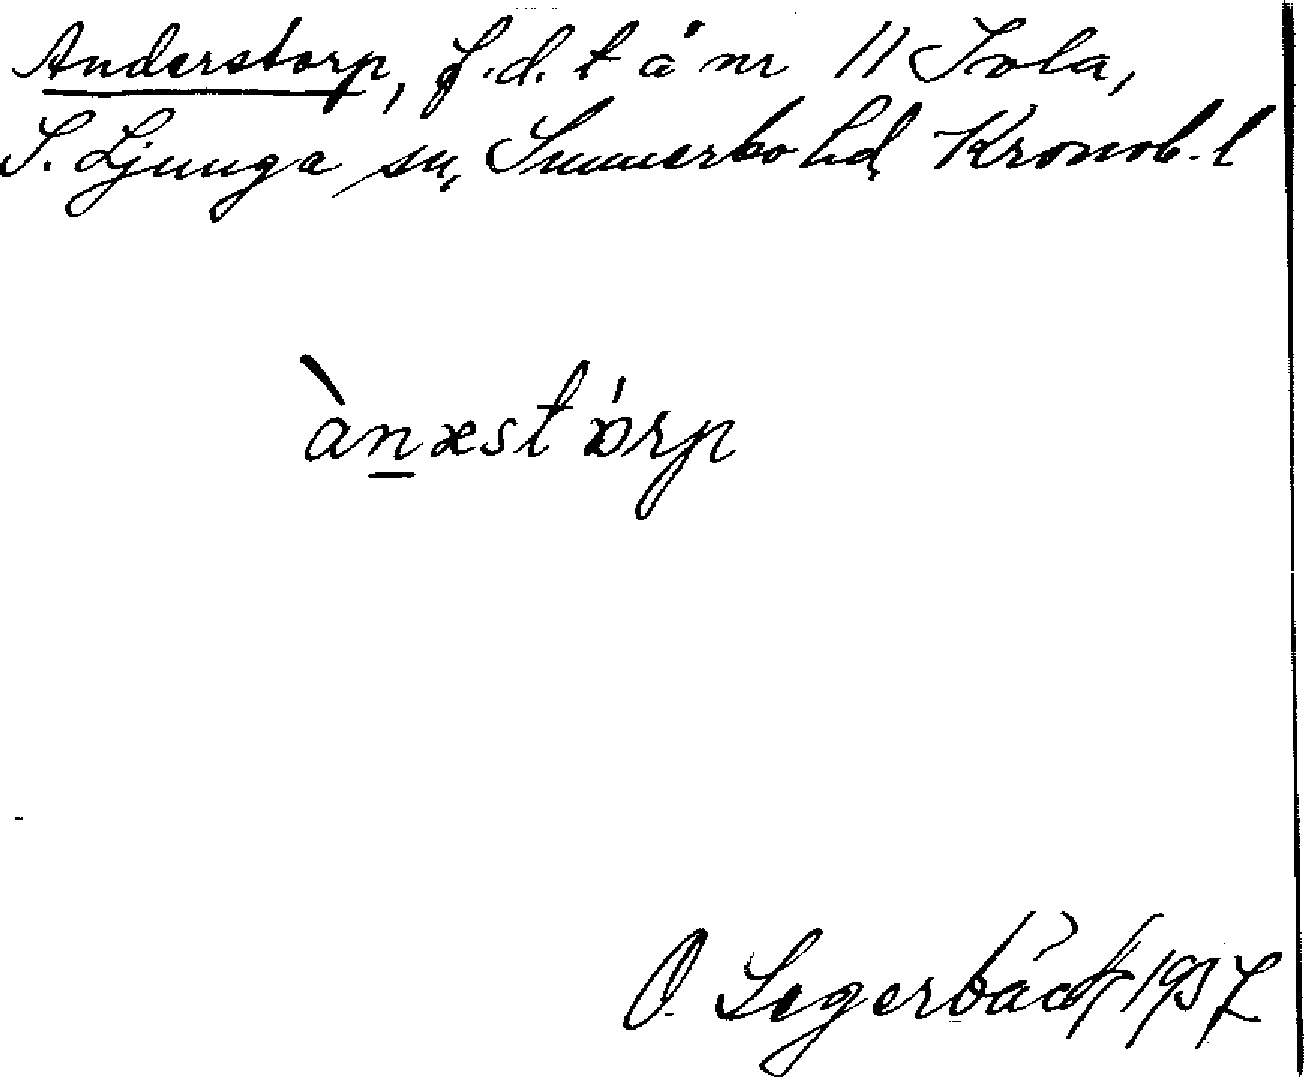 Anderstorp, f.d. t å nr 11 Ivla,
S. Ljunga sn, Sunnerbo hd, Kronob. l
ànæstɔ́rp
O. Segerbäck 1937